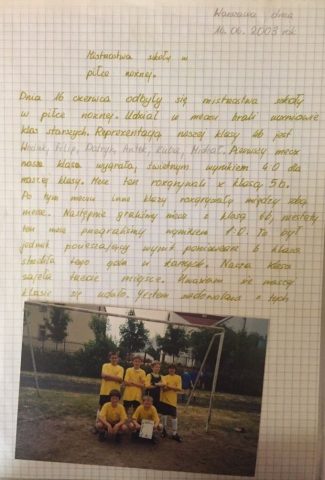 Warszawa dnia
16.06.2003 rok
Mistrzostwa szkoły w
piłce nożnej.
Dnia 16 czerwca odbyły się mistrzostwa szkoły
w piłce nożnej. Udział w meczu brali uczniowie
klas starszych. Reprezentacja naszej klasy 4b jest
Wojtek, Filip, Patryk, Antek, Kuba, Michał. Pierwszy mecz
nasza klasa wygrała, świetnym wynikiem 4:0 dla
naszej klasy. Mecz ten rozgrywali z klasą 5b.
Po tym meczu inne klasy rozgrywały między sobą
mecze. Następnie graliśmy mecz z klasą 6b, niestety
ten mecz przegraliśmy wynikiem 1:0. To był
jednak pocieszający wynik ponieważ 6 klasa
strzeliła tego gola w karnych. Nasza klasa
zajęła trzecie miejsce. Uważam że naszej
klasie się udało. Jestem zadowolona z tych